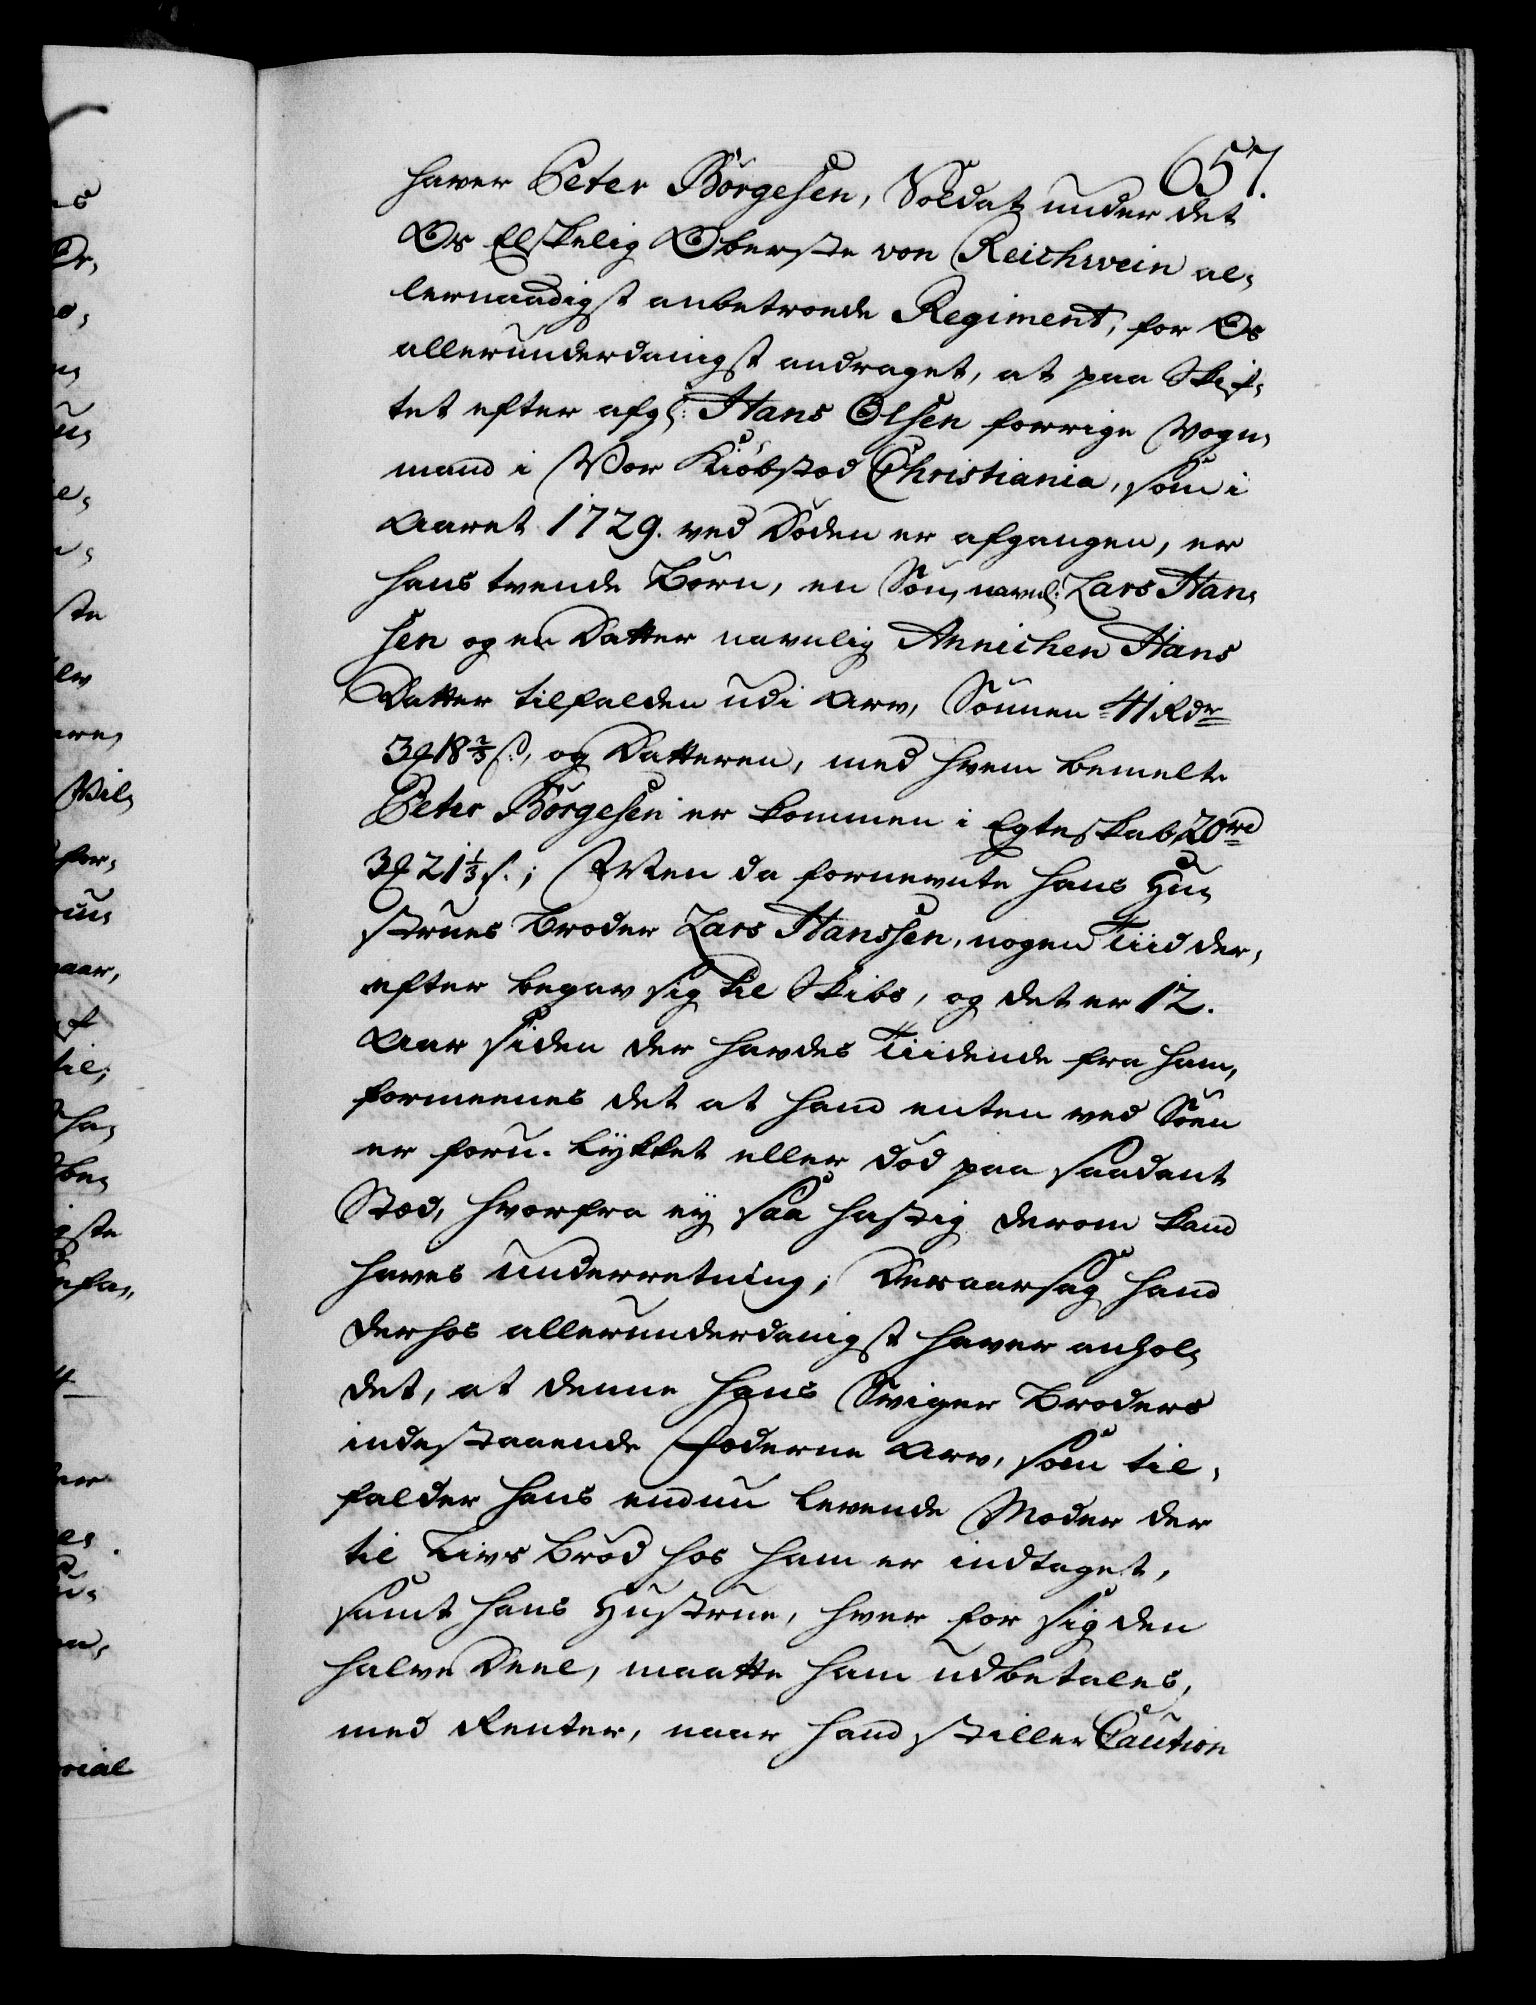 657.
haver Peter Börgesen, Soldat under det
Os Elskelig Oberste von Reichwein al,
lernaadigst anbetroede Regiment, for Os
allerunderdanigst andraget, at paa Skif,
tet efter afg: Hans Olsen forrige Vogn,
mand i Vor Kiöbsted Christiania, som i
Aaret 1729. ved Döden er afgangen, er
hans tvende Börn, en Sön, navnl: Lars Han,
sen og en Datter navnlig Annichen Hans
Datter tilfalden udi Arv, Sönnen 41 Rdr
3 18 2/3 s., og Datteren, med hvem bemelte
Peter Börgesen er kommen i Egteskab, 20 rd
3 21 1/3 s.; Men da fornevnte hans Hu,
strues Broder Lars Hanssen, nogen Tiid der,
efter begav sig til Skibs, og det er 12.
Aar siden der havdes Tiidende fra ham,
formeenes det at hand enten ved Söen
er foru. lykket eller död paa saadant
Sted, hvorfra ey saa hastig derom kand
haves Underretning; Deraarsag hand
derhos allerunderdanigst haver anhol,
det, at denne hans Sviger Broders
indestaaende Federne Arv, som til,
falder hans endnu levende Moder der
til Livs Bröd hos ham er indtaget,
samt hans Hustrue, hver for sig den
halve Deel, maatte ham udbetales,
med Renter, naar hand stiller Caution